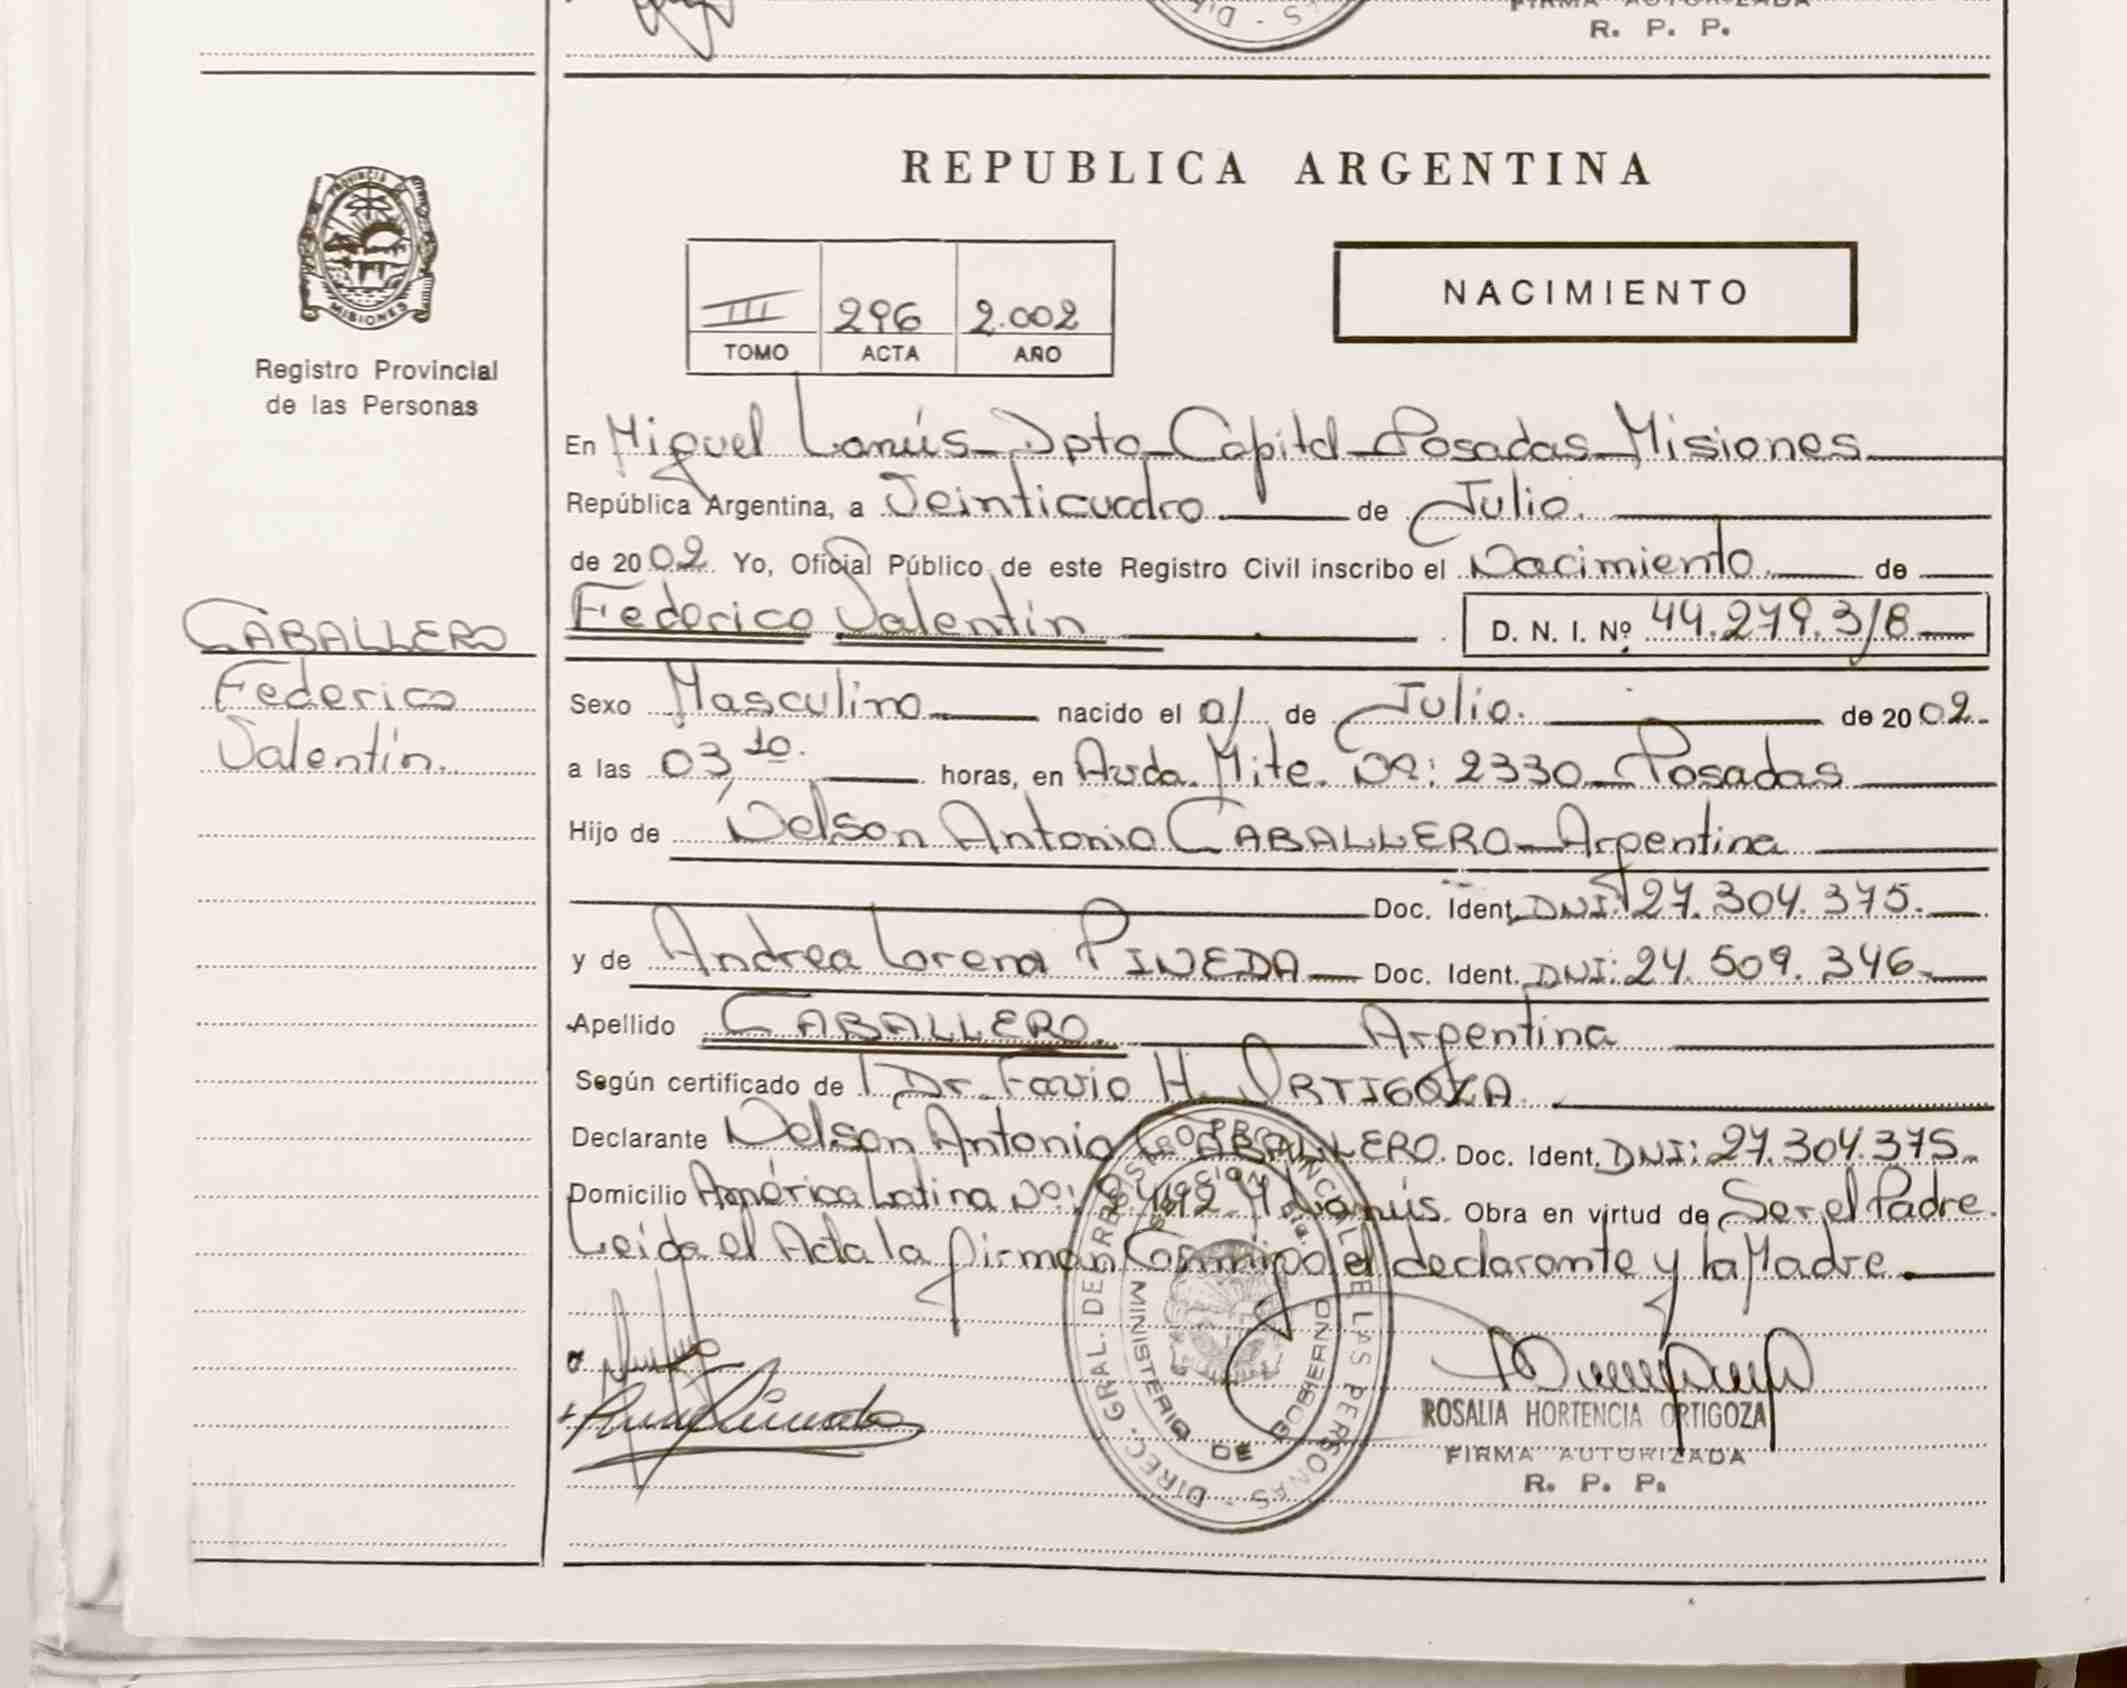 FIRMA AUTORIZADA
R. P. P.
PROVINCIA DE
MISIONES
Registro Provincial
de las Personas
CABALLERO
Federico
Valentín.
REPUBLICA ARGENTINA
III 296 2.002
TOMO ACTA AÑO
NACIMIENTO
En Miguel Lanús - Dpto Capital - Posadas - Misiones
República Argentina, a Veinticuatro de Julio.
de 2002 Yo, Oficial Público de este Registro Civil inscribo el Nacimiento de
Federico Valentín D. N. I. Nº 44.279.318
Sexo Masculino nacido el 01 de Julio. de 2002.
a las 03,10. horas, en Avda. Mitre. Nº: 2330 - Posadas
Hijo de Nelson Antonio CABALLERO - Argentina
Doc. Ident. DNI: 27.304.375.
y de Andrea Lorena PINEDA - Doc. Ident. DNI: 24.509.346.
Apellido CABALLERO. Argentina
Según certificado de Dr. Favio H. ORTIGOZA
Declarante Nelson Antonio CABALLERO. Doc. Ident. DNI: 27.304.375.
Domicilio América Latina Nº: M Lanús. Obra en virtud de Ser el Padre.
Leida el Acta la firman Conmigo el declarante y la Madre.
DIREC. GRAL. DE REGISTRO PROVINCIAL DE LAS PERSONAS
MINISTERIO DE GOBIERNO
ROSALIA HORTENCIA ORTIGOZA
FIRMA AUTORIZADA
R. P. P.